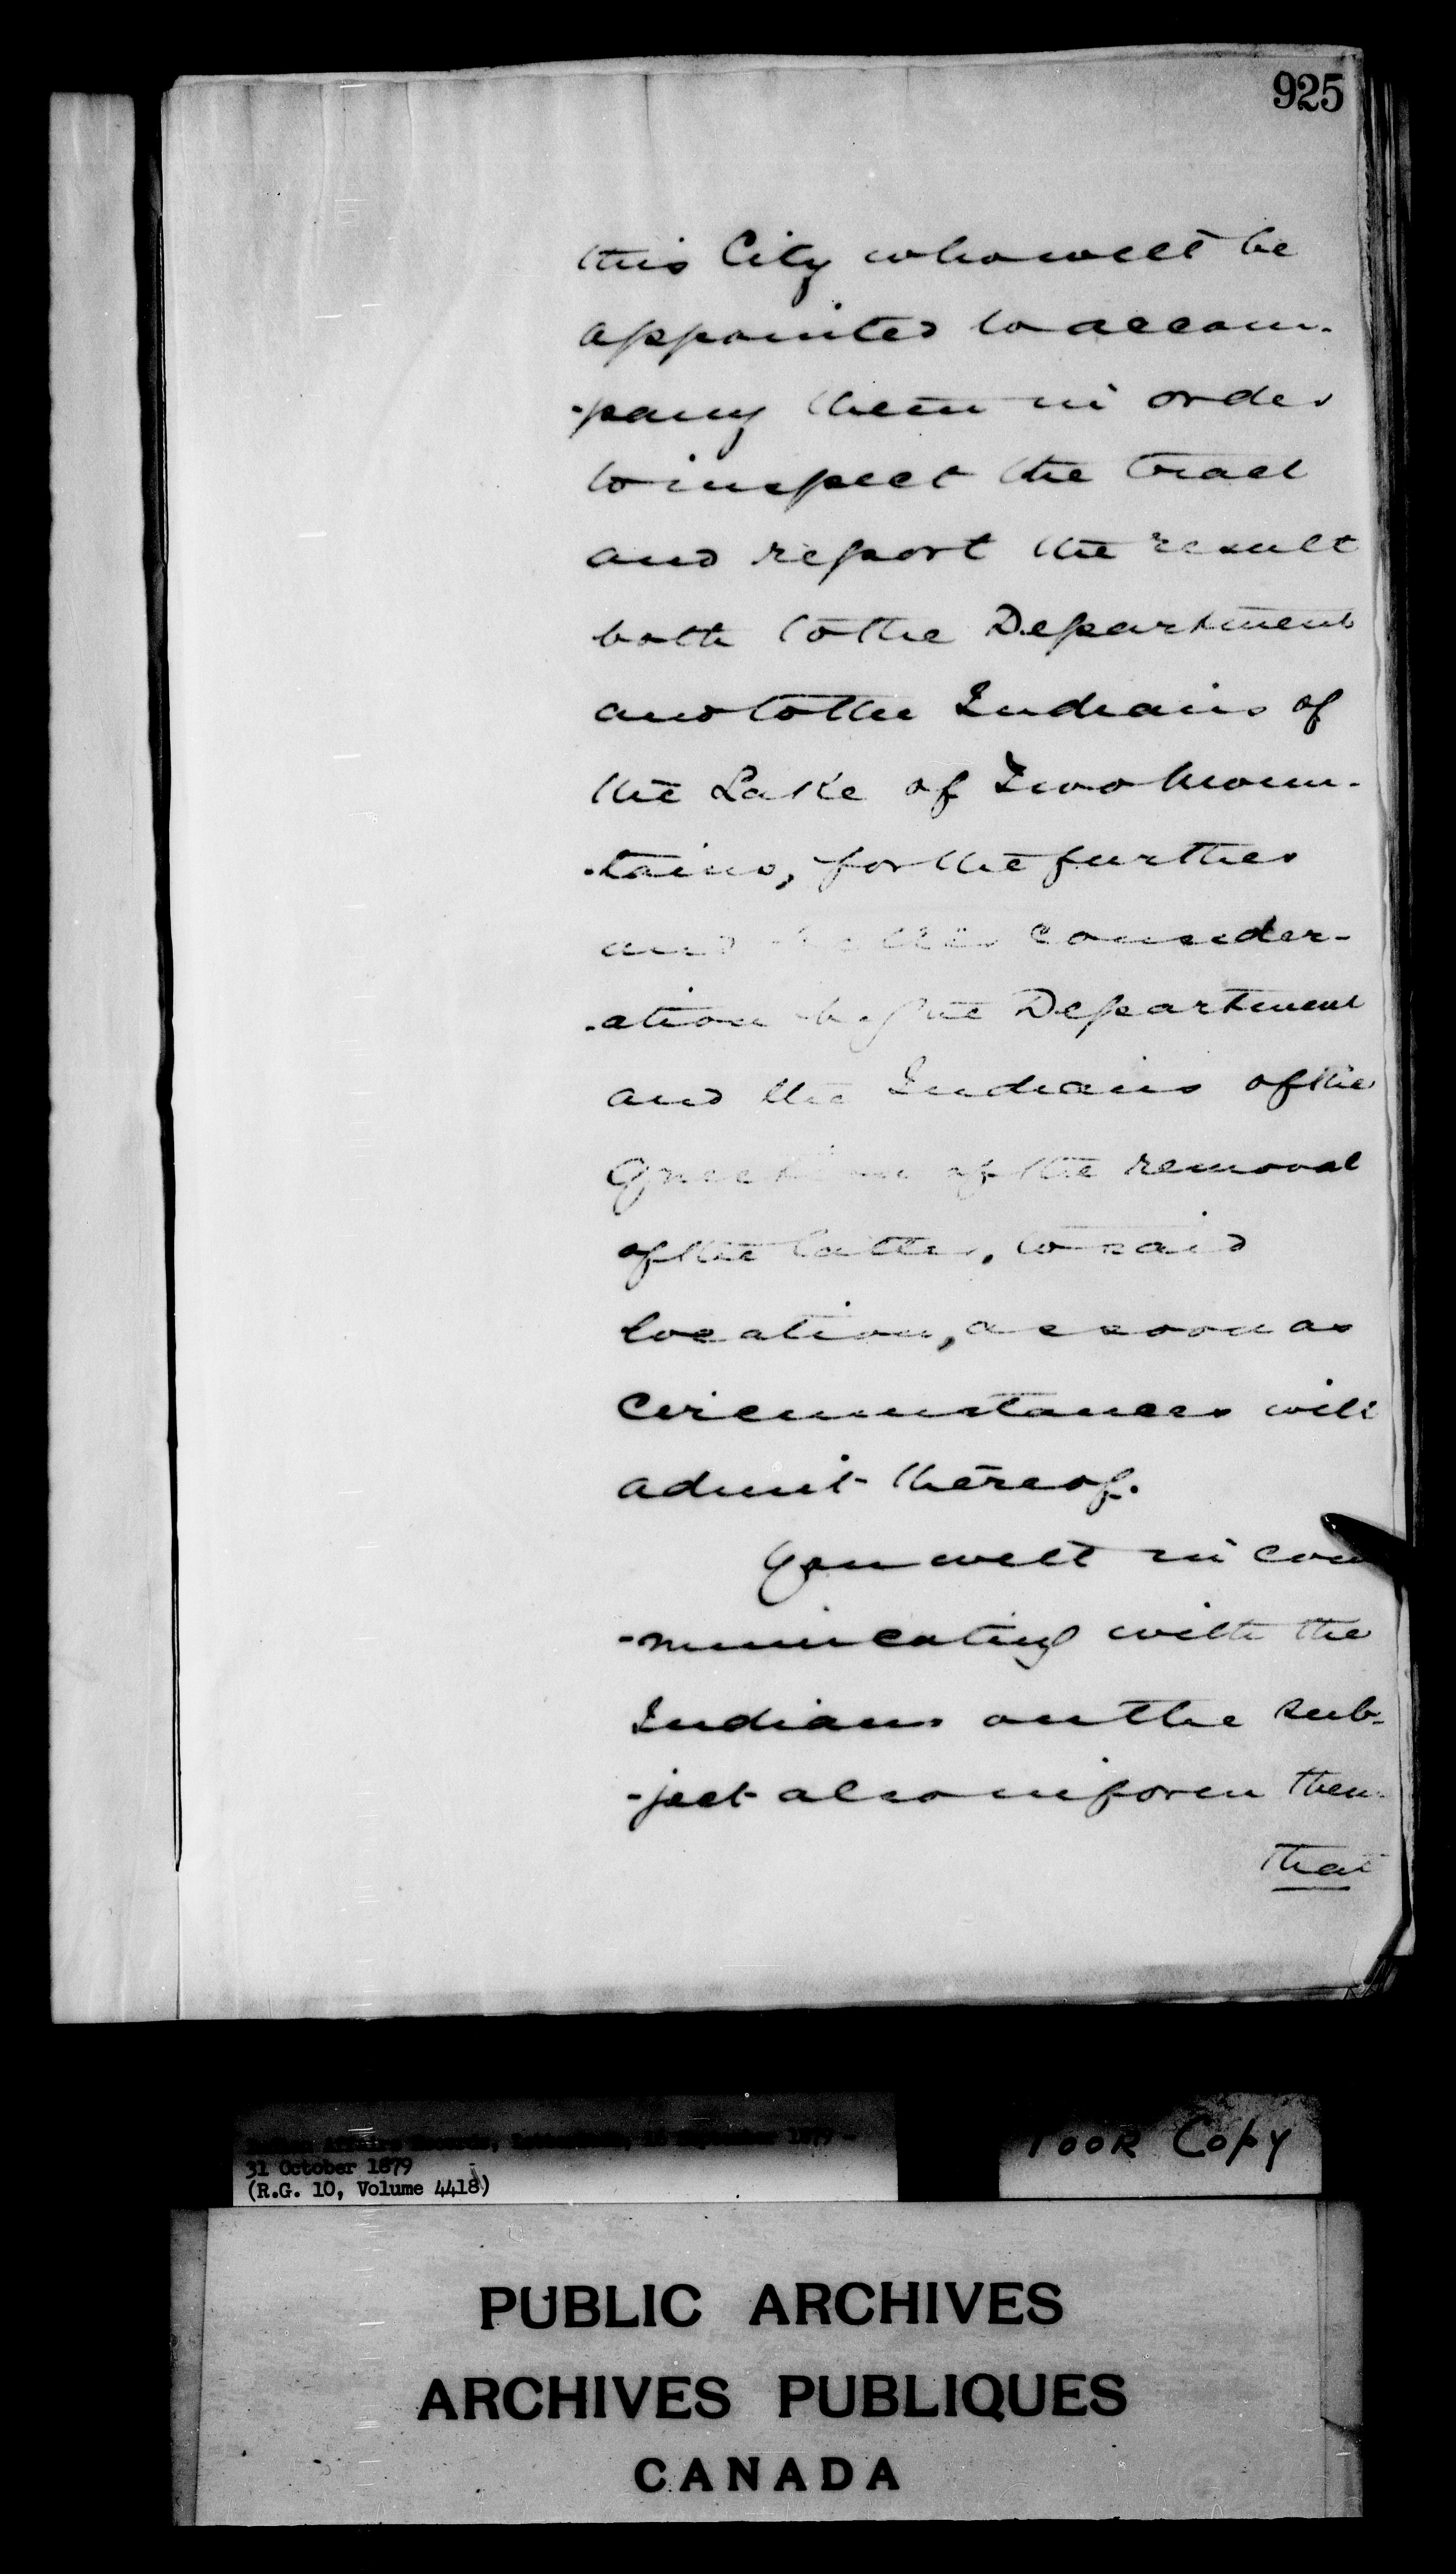 925
this City who will be
appointed to accom-
-pany them in order
to inspect the tract
and report the result
both to the Department
and to the Indians of
the Lake of Two Moun-
-tains, for the further
and consider-
-ation by the Department
and the Indians of the
Question of the removal
of the latter, to said
location, as soon as
circumstances will
admit thereof.
You will in com
-municating with the
Indians on the sub-
-ject also inform them
that
Indian Affairs Records, Letterbook, September 1879 -
31 October 1879
(R.G. 10, Volume 4418)
Poor Copy
PUBLIC ARCHIVES
ARCHIVES PUBLIQUES
CANADA